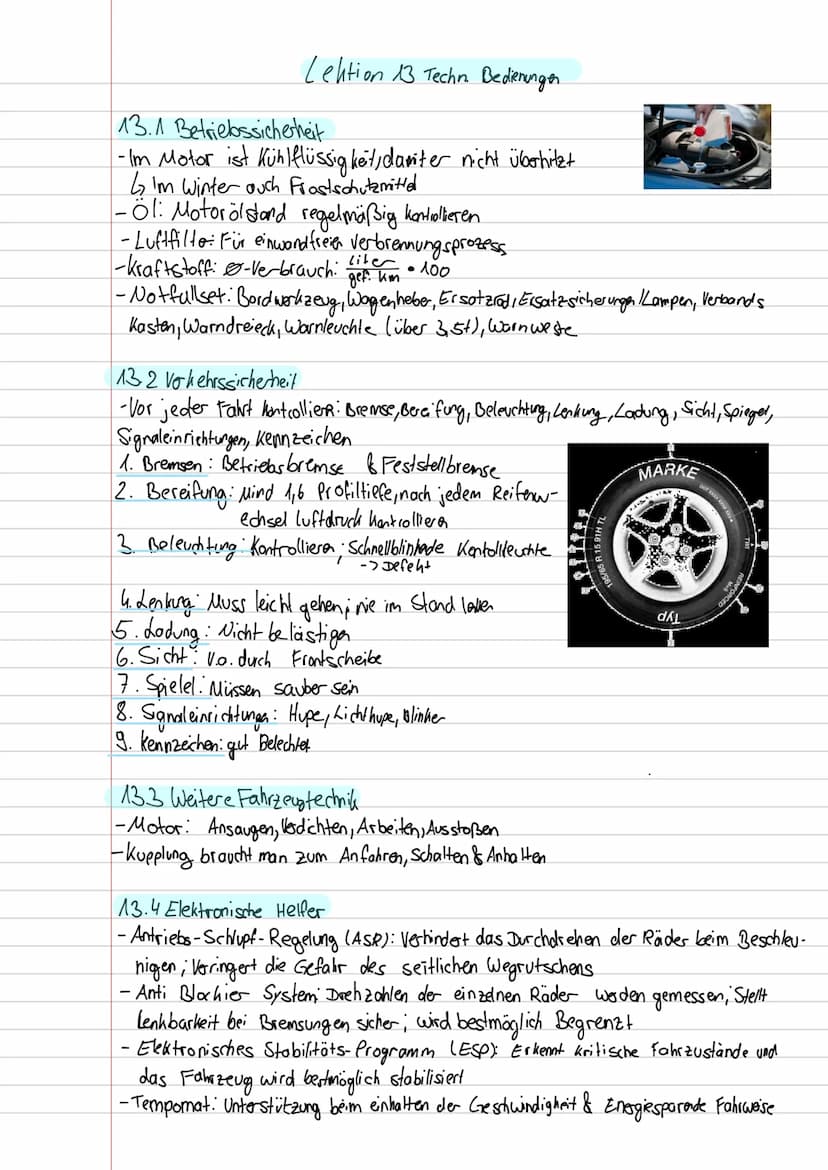 Lektion 13 Techn. Bedienungen
13.1 Betriebssicherheit
- Im Motor ist Kühlflüssigkeit, damit er nicht überhitzt
↳ Im Winter auch Frostschutzmittel
- Öl: Motorölstand regelmäßig kontrollieren
- Luftfilter: Für einwandfreien Verbrennungsprozess
- Kraftstoff: Ø-Verbrauch: Liter / gef. km • 100
- Notfallset: Bordwerkzeug, Wagenheber, Ersatzrad, Ersatzsicherungen/Lampen, Verbands
Kasten, Warndreieck, Warnleuchte (über 3,5t), Warnweste
13.2 Verkehrssicherheit
- Vor jeder Fahrt kontrollieren: Bremse, Bereifung, Beleuchtung, Lenkung, Ladung, Sicht, Spiegel,
Signaleinrichtungen, Kennzeichen
1. Bremsen: Betriebsbremse & Feststellbremse
2. Bereifung: Mind 1,6 Profiltiefe, nach jedem Reifenw-
echsel Luftdruck kontrollieren
3. Beleuchtung: Kontrollieren; Schnellblinkende Kontollleuchte
-> Defekt
4. Lenkung: Muss leicht gehen; nie im Stand lenken
5. Ladung: Nicht belästigen
6. Sicht: v.a. durch Frontscheibe
7. Spielel: Müssen sauber sein
8. Signaleinrichtungen: Hupe, Lichthupe, Blinker
9. Kennzeichen: gut Belechtet
MARKE
195/65 R 15 91H TL
REINFORCED
M+S
TWI
Typ
13.3 Weitere Fahrzeugtechnik
- Motor: Ansaugen, Verdichten, Arbeiten, Ausstoßen
- Kupplung braucht man zum Anfahren, Schalten & Anhalten
13.4 Elektronische Helfer
- Antriebs-Schlupf-Regelung (ASR): Verhindert das Durchdrehen der Räder beim Beschleu-
nigen; Verringert die Gefahr des seitlichen Wegrutschens
- Anti Blockier System: Drehzahlen der einzelnen Räder werden gemessen; Stellt
Lenkbarkeit bei Bremsungen sicher; wird bestmöglich Begrenzt
- Elektronisches Stabilitäts-Programm (ESP): Erkennt kritische Fahrzustände und
das Fahrzeug wird bestmöglich stabilisiert
- Tempomat: Unterstützung beim einhalten der Geschwindigkeit & Energiesparende Fahrweise